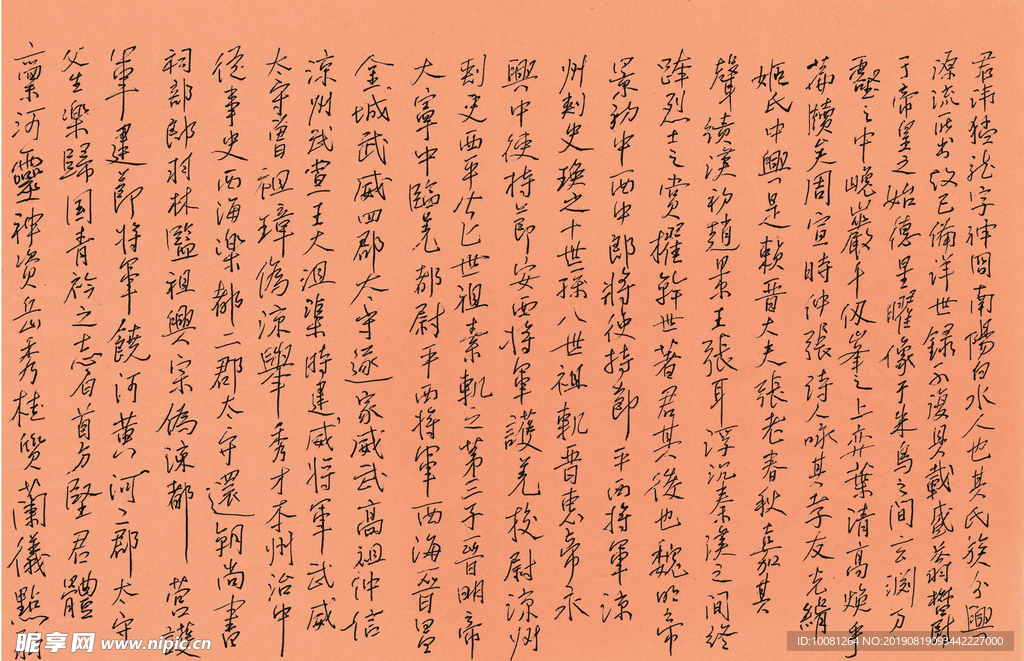 君諱猛龍字神冏南陽白水人也其氏族分興
源流所出故已備詳世錄不復具載盛蓊鬱於
帝皇之始德星曜像于朱鳥之間玄淵万
壑之中巉巖千仭峯之上弈葉清高煥乎
篇牘矣周宣時仲張詩人咏其孝友光緝
姬氏中興是賴晉大夫張老春秋嘉其
聲績漢初趙景王張耳浮沉秦漢之間終
跨列士之賞擢幹世著君其後也魏明帝
景初中西中郎將使持節平西將軍涼
州刾史瑛之十世孫八世祖軌晉惠帝永
興中使持節安西將軍護羌校尉涼州
刾史西平公七世祖素軌之第三子晉明帝
大寧中臨羌都尉平西將軍西海晉昌
金城武威四郡太守遂家武威高祖仲信
涼州武宣王大沮渠時建威將軍武威
太守曾祖璋偽涼舉秀才本州治中
從事史西海樂都二郡太守還朝尚書
祠部郎羽林監祖興宗偽涼都營護
軍建節將軍饒河黃河二郡太守
父生樂歸國青衿之志白首方堅君體
稟河靈神資岳秀桂質蘭儀點
昵享网 www.nipic.cn
ID:10081264 NO:20190819093442227000